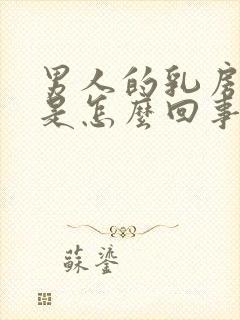 男人的乳房
是怎麼回事
蘇鎏